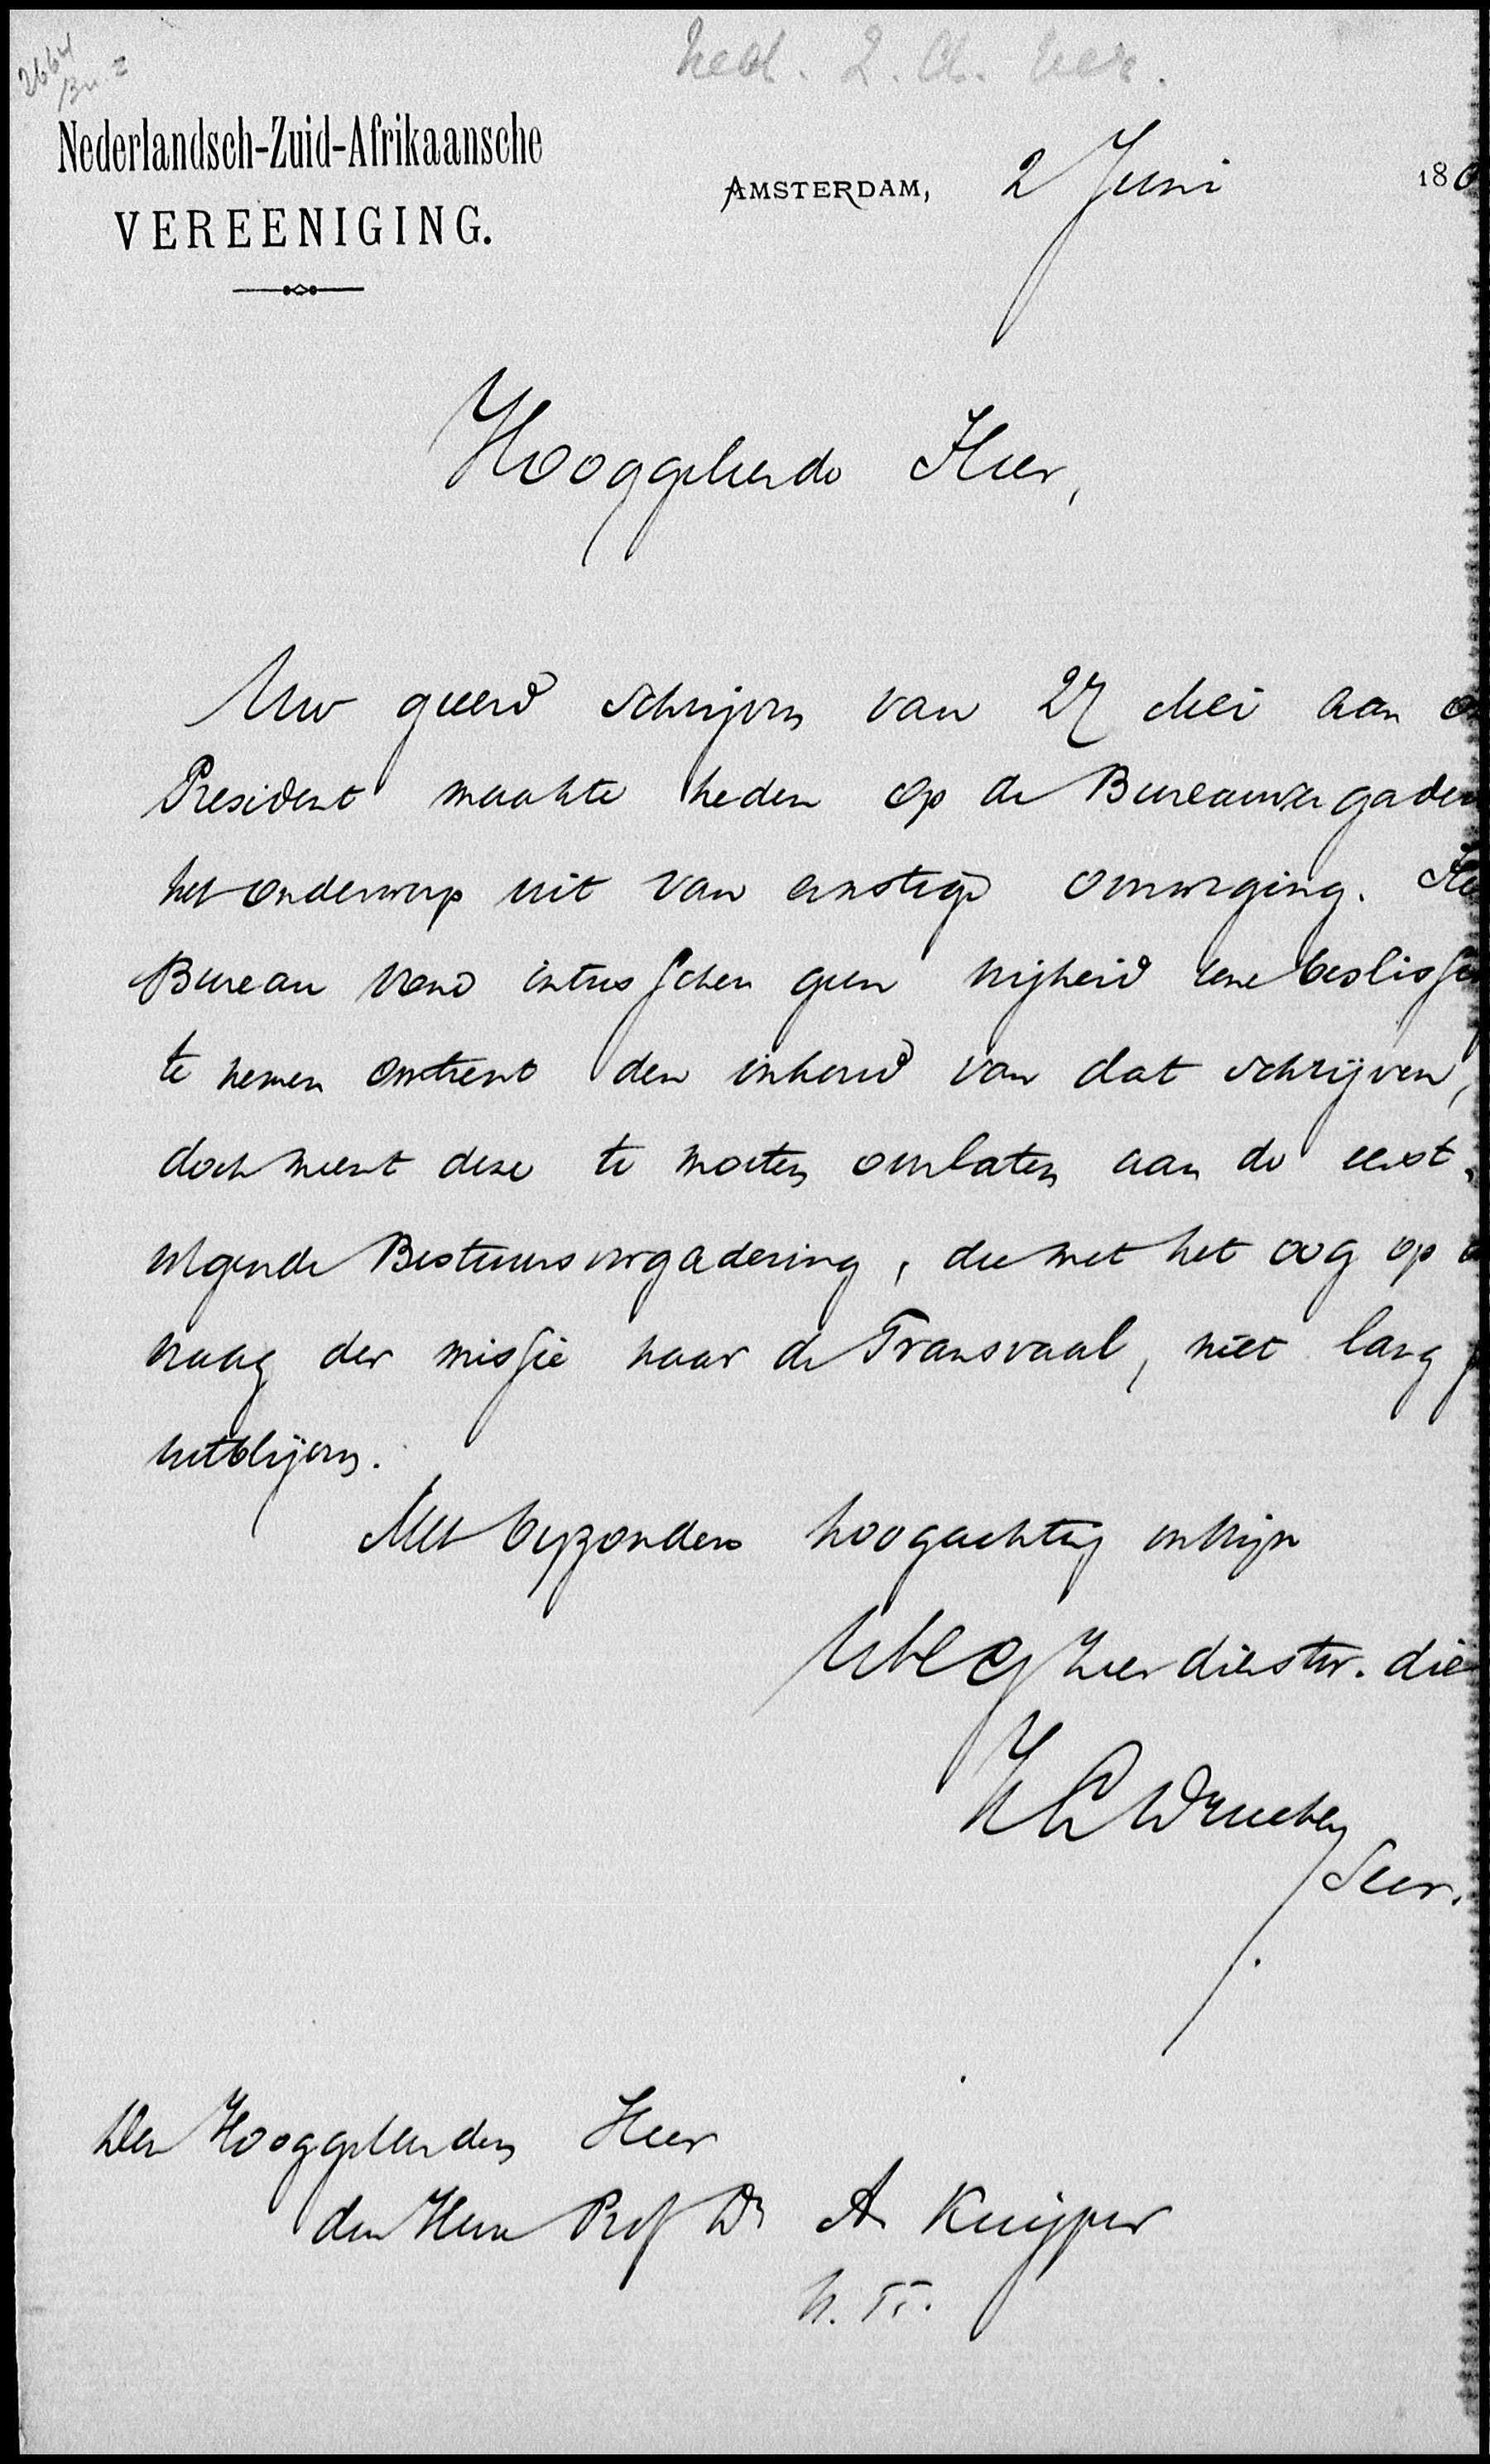 2664
Ned. Z. A. Ver.
Nederlandsch-Zuid-Afrikaansche
VEREENIGING.
AMSTERDAM, 2 Juni 18
Hooggeleerde Heer,
Uw geeerd schrijven van 27 Mei aan
President maakte heden op de Bureauvergader
het onderwerp uit van ernstige overweging. He
Bureau vond intusschen geen vrijheid eene beslissi
te nemen omtrent den inhoud van dat schrijven,
doch meent deze te moeten overlaten aan de eerst-
volgende Bestuursvergadering, die met het oog op
vraag der missie naar de Transvaal, niet lang
uitblijven.
Met byzondere hoogachting verblijve
UHEG zeer dienstw. die
Secr.
Den Hooggeleerden Heer
den Heer Prof Dr A Kuijper